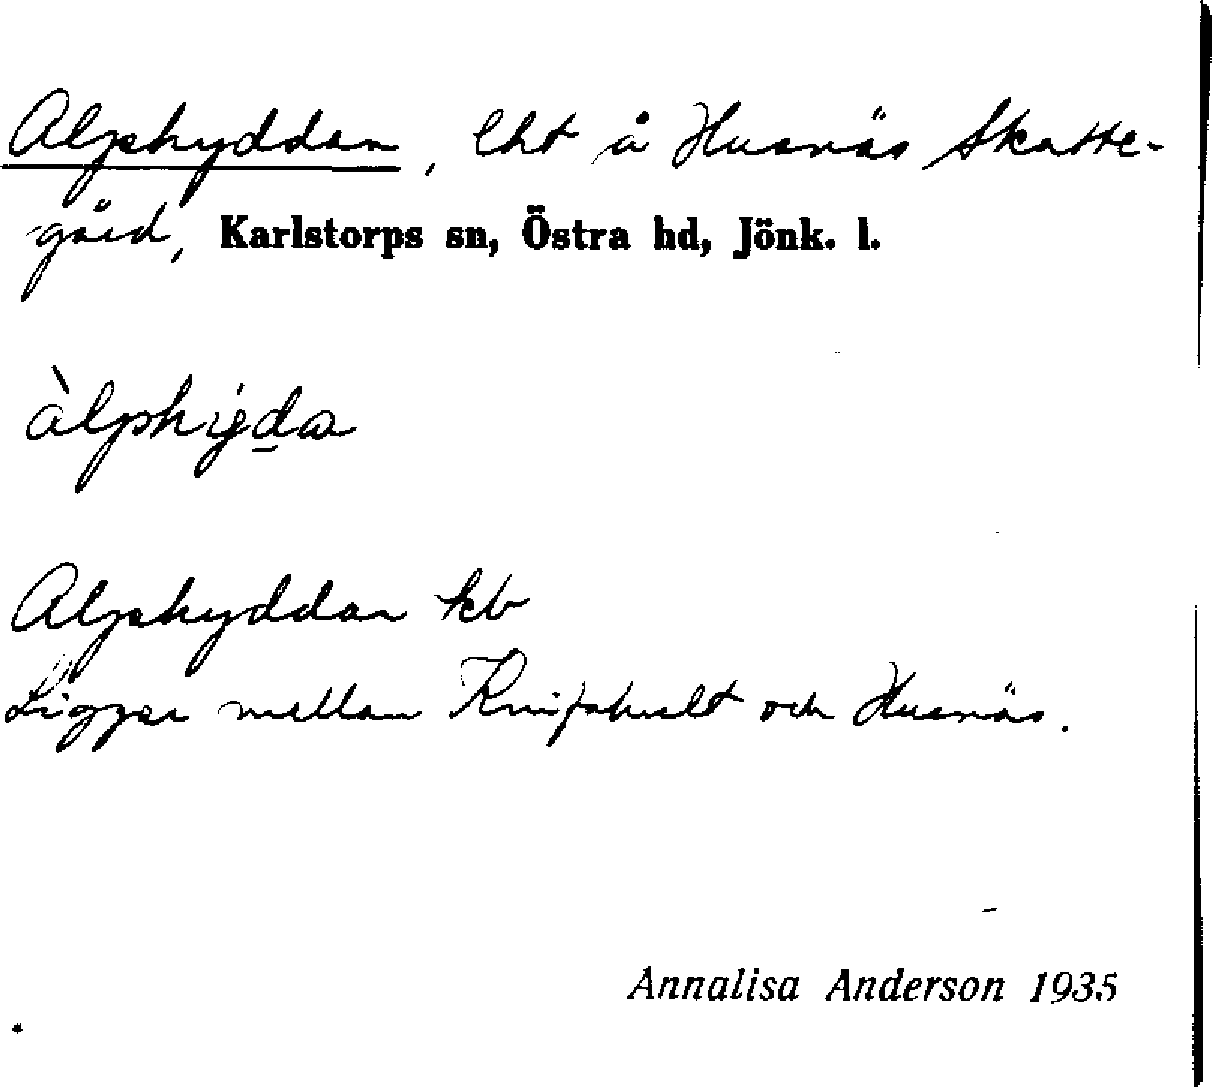 Alphyddan, lht å Husnäs Skatte-
gård, Karlstorps sn, Östra hd, Jönk. l.
àlphyda
Alphyddan kb
Ligger mellan Knifshult och Husnäs.
Annalisa Anderson 1935